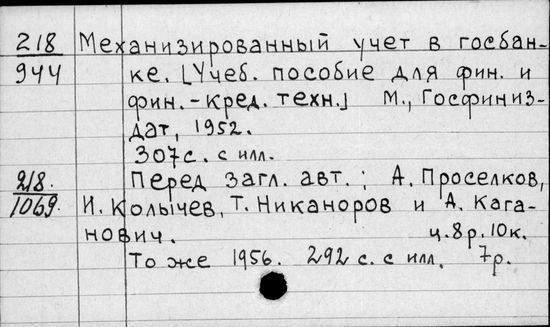 218 Механизированный учет в госбан-
944 ке. [Учеб. пособие для фин. и
фин.-кред. техн.] М., Госфиниз-
дат, 1952.
307 с. с илл.
218. Перед загл. авт.: А. Проселков,
1069. И. Колычев, Т. Никаноров и А. Кага-
нович. ц. 8 р. 10 к.
То же 1956. 292 с. с илл. 7 р.